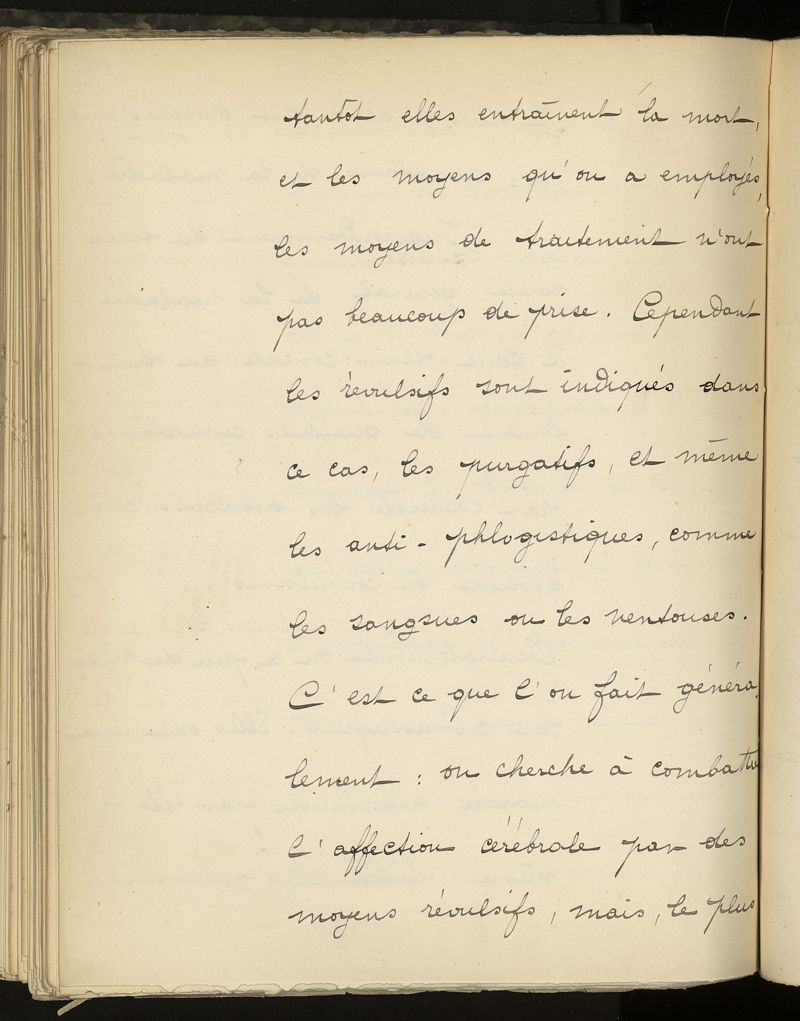 tantôt elles entraînent la mort,
et les moyens qu'on a employés,
les moyens de traitement n'ont
pas beaucoup de prise. Cependant
les révulsifs sont indiqués dans
ce cas, les purgatifs, et même
les anti-phlogistiques, comme
les sangsues ou les ventouses.
C'est ce que l'on fait généra-
lement : on cherche à combattre
l'affection cérébrale par des
moyens révulsifs, mais, le plus